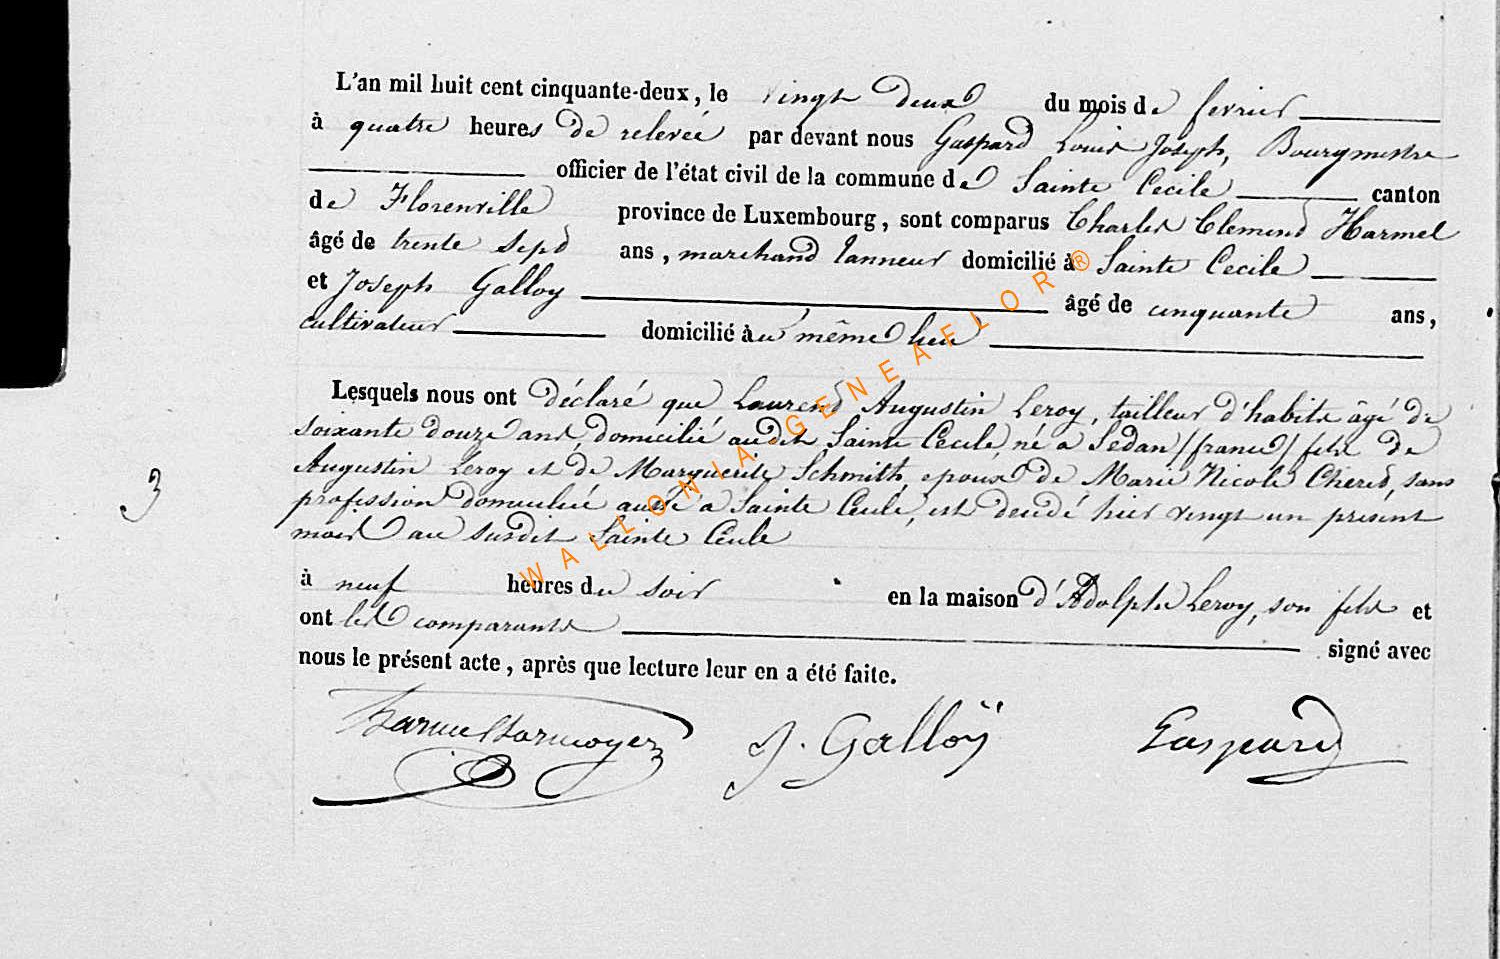 L'an mil huit cent cinquante-deux, le vingt deux du mois de fevrier
à quatre heures de relevée par devant nous Gaspard Louis Joseph, Bourgmestre
officier de l'état civil de la commune de Sainte Cecile canton
de Florenville province de Luxembourg, sont comparus Charles Clement Harmel
âgé de trente sept ans, marchand tanneur domicilié à Sainte Cecile
et Joseph Galloy âgé de cinquante ans,
cultivateur domicilié au même lieu
Lesquels nous ont déclaré que Laurent Augustin Leroy, tailleur d'habits âgé de
soixante douze ans, domicilié audit Sainte Cecile, né a Sedan /france/ fils de
Augustin Leroy et de Marguerite Schmith, epoux de Marie Nicole Chered, sans
3
profession domiciliée aussi a Sainte Cecile, est decedé hier vingt un present
mois au susdit Sainte Cecile
à neuf heures du soir en la maison d'Adolphe Leroy, son fils et
ont les comparants signé avec
nous le présent acte, après que lecture leur en a été faite.
J. Galloÿ Gaspard
WALLONIA GENEAFLOR®